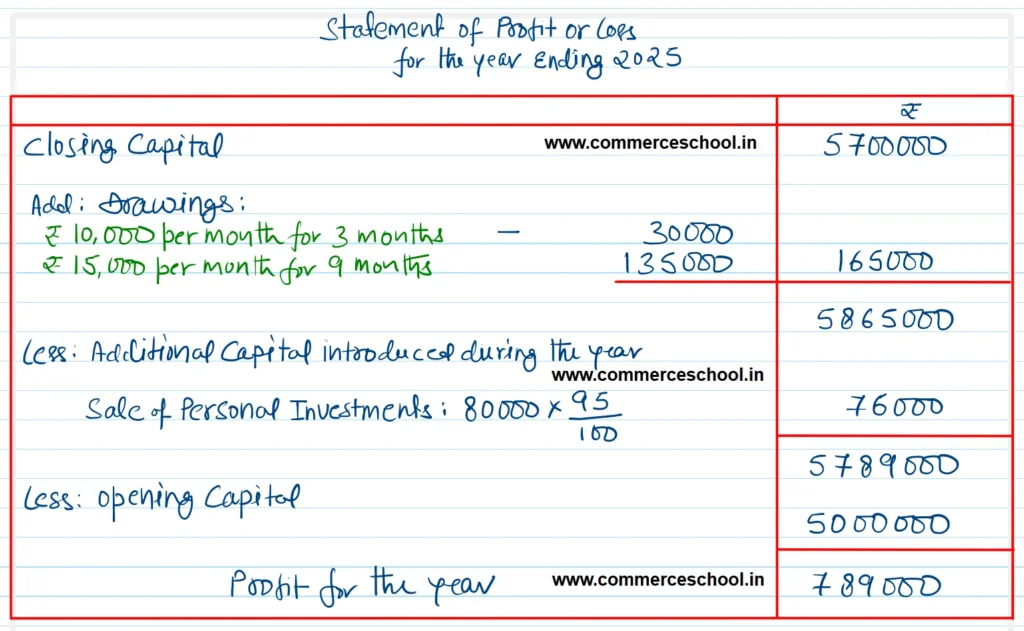 Statement of Profit or Loss
for the year Ending 2025
₹
Closing Capital www.commerceschool.in 5700000
Add: Drawings:
₹ 10,000 per month for 3 months — 30000
₹ 15,000 per month for 9 months 135000 165000
5865000
Less: Additional Capital introduced during the year
www.commerceschool.in
Sale of Personal Investments: 80000 × 95/100 76000
5789000
Less: opening Capital
5000000
Profit for the year www.commerceschool.in 789000